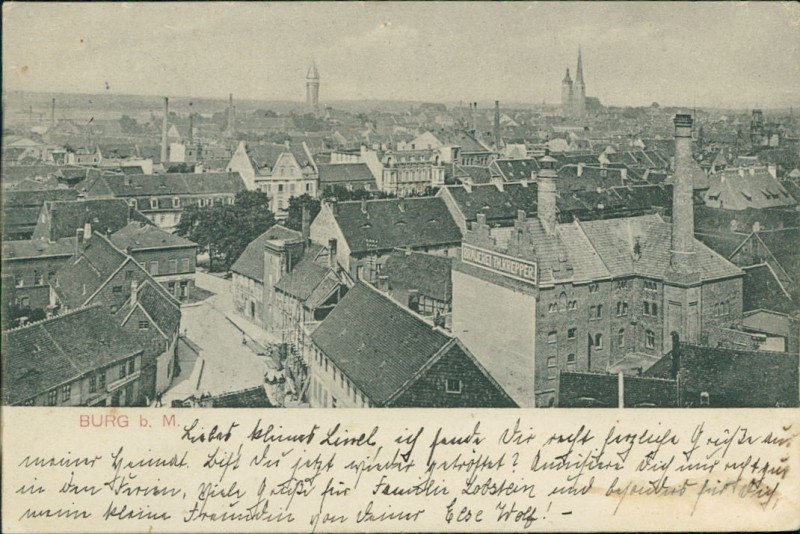 BRAUEREI TH. KREPPER.
BURG b. M.
Liebes kleines Liesel, ich sende Dir recht herzliche Grüße aus
meiner Heimat. Bist Du jetzt wieder getröstet? Amüsiere Dich nur recht gut
in den Ferien, Viele Grüße für Familie Lobstein und besonders für Dich,
meine kleine Freundin von deiner Else Wolf! –